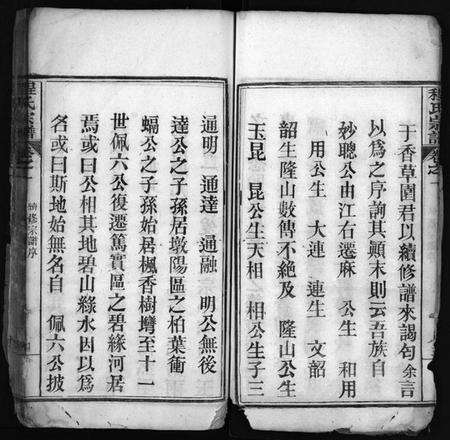 程氏宗譜
于香草園君以續修譜來謁勻余言
以為之序詢其顛末則云吾族自
妙聰公由江右遷麻 公生 和用
用公生 大連 連生 文韶
韶生隆山數傳不絕及 隆山公生
玉昆 昆公生天相 相公生子三
通明 通達 通融 明公無後
達公之子孫居墩陽區之柏葉衝
蝠公之子孫始居楓香樹塆至十一
世佩六公復遷篤實區之碧綠河居
焉或曰公相其地碧山綠水因以為
名或曰斯地始無名自 佩六公披
程氏宗譜
卷之一
續修宗譜序